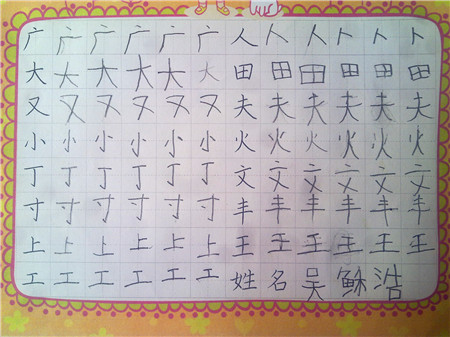 广 广 广 广 广 广 人 人 人 卜 卜 卜
大 大 大 大 大 大 田 田 田 田 田 田
又 又 又 又 又 又 夫 夫 夫 夫 夫 夫
小 小 小 小 小 小 火 火 火 火 火 火
丁 丁 丁 丁 丁 丁 文 文 文 文 文 文
寸 寸 寸 寸 寸 寸 丰 丰 丰 丰 丰 丰
上 上 上 上 上 上 王 王 王 王 王 王
工 工 工 工 工 工 姓 名 吴 稣 浩